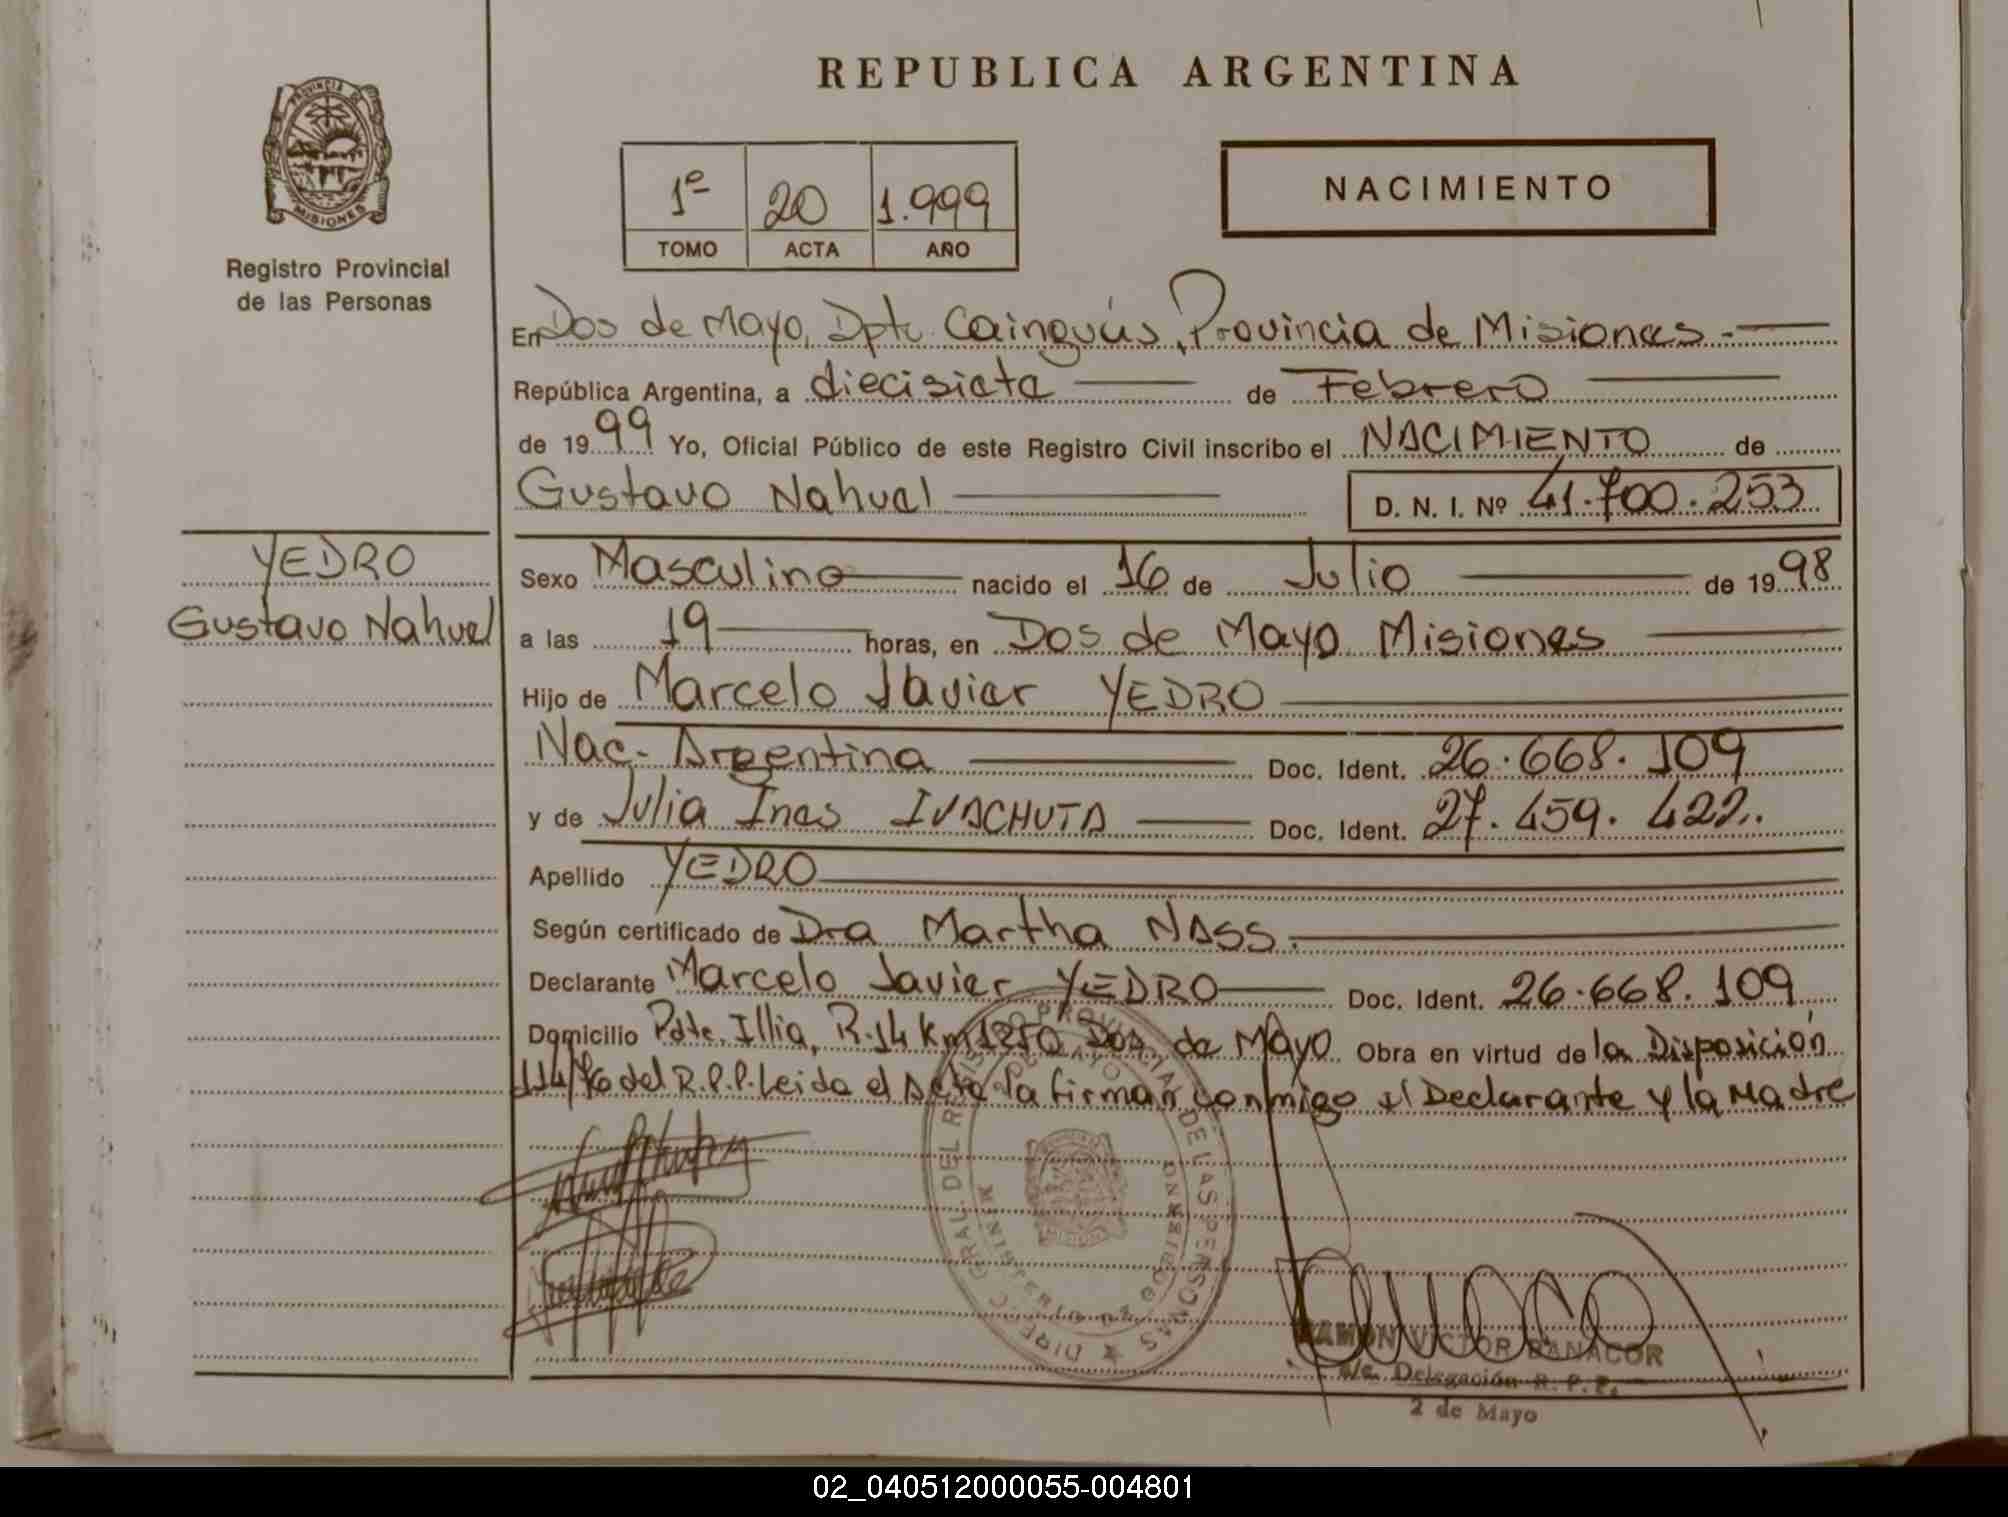 REPUBLICA ARGENTINA
PROVINCIA DE
MISIONES
Registro Provincial
de las Personas
1º 20 1.999
TOMO ACTA AÑO
NACIMIENTO
En Dos de Mayo, Dpto Cainguás, Provincia de Misiones.-
República Argentina, a diecisiete de Febrero
de 1999 Yo, Oficial Público de este Registro Civil inscribo el NACIMIENTO de
Gustavo Nahuel D. N. I. Nº 41.700.253
YEDRO
Gustavo Nahuel
Sexo Masculino nacido el 16 de Julio de 1998
a las 19 horas, en Dos de Mayo Misiones
Hijo de Marcelo Javier YEDRO
Nac- Argentina Doc. Ident. 26.668.109
y de Julia Ines IVACHUTA Doc. Ident. 27.459.422.
Apellido YEDRO
Según certificado de Dra Martha NASS.
Declarante Marcelo Javier YEDRO Doc. Ident. 26.668.109
Domicilio Pdte. Illia, R.14 km 1250 Dos de Mayo Obra en virtud de la Disposición
114/76 del R.P.P. Leida el Acta la firman conmigo el Declarante y la Madre
DIREC. GRAL. DEL REGISTRO PROVINCIAL DE LAS PERSONAS
MINISTERIO DE GOBIERNO
RAMON VICTOR BANACOR
a/c. Delegación R. P. P.
2 de Mayo
02_040512000055-004801